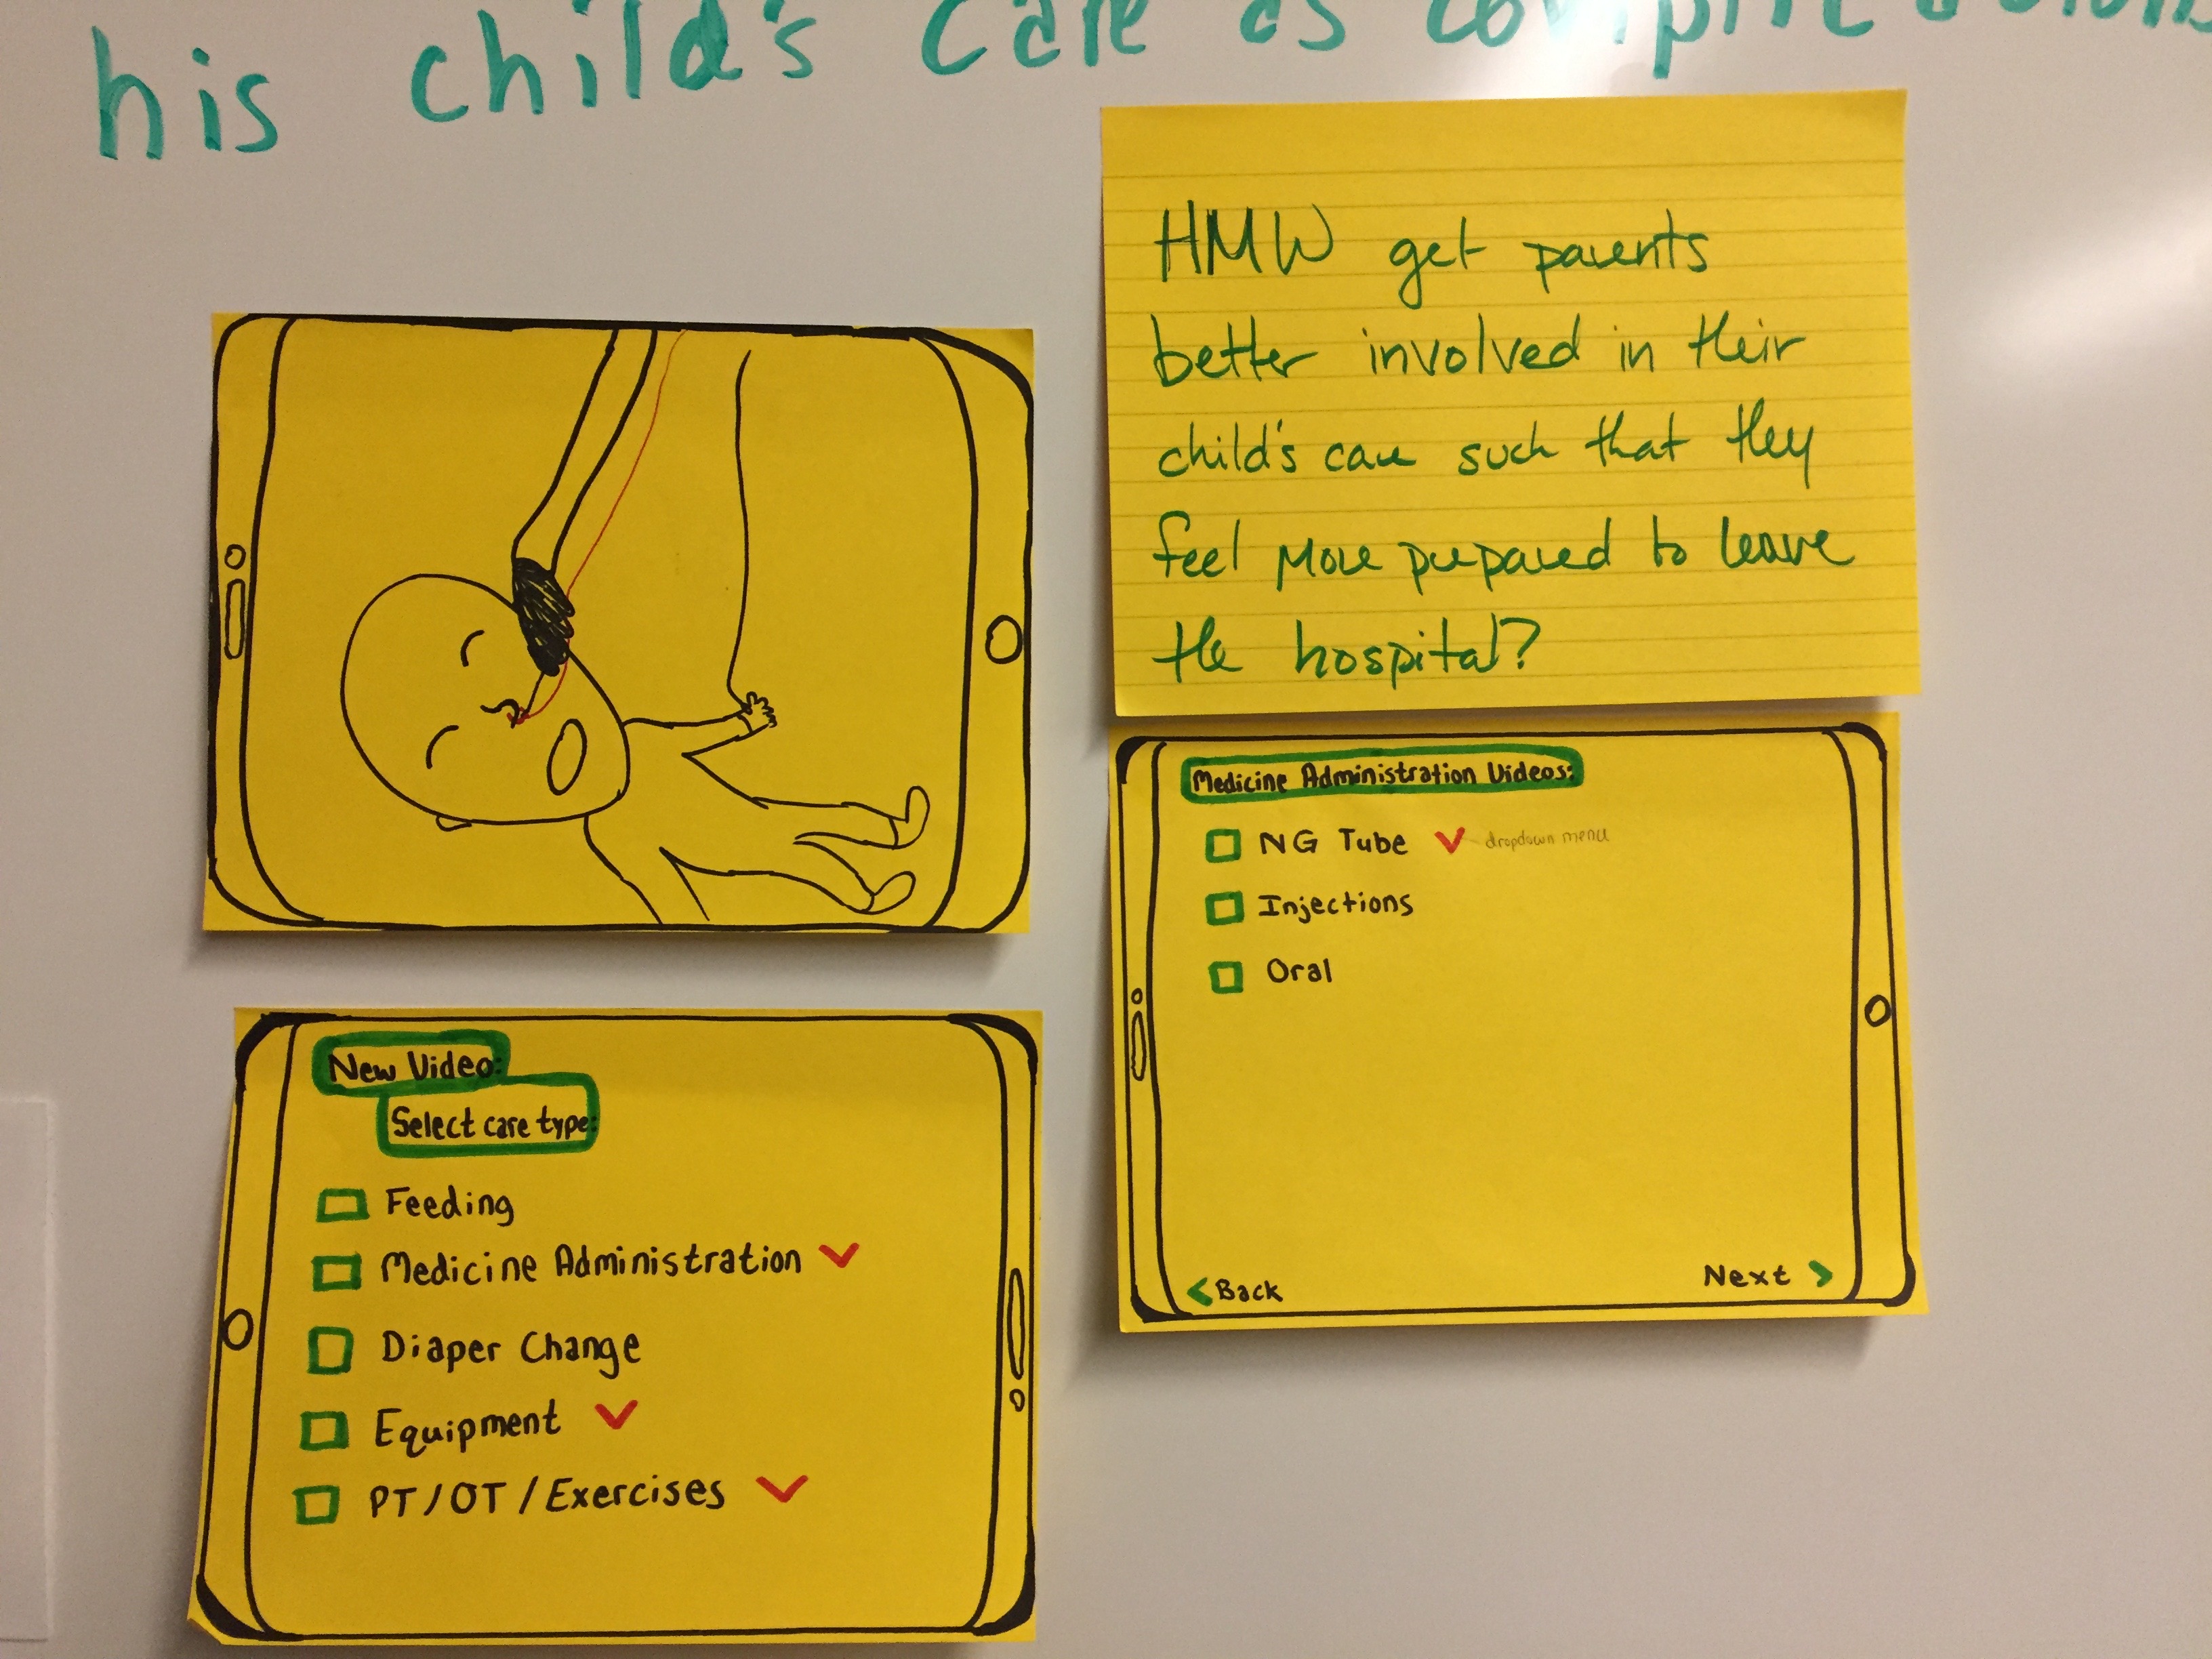 his child's care as
HMW get parents
better involved in their
child's care such that they
feel more prepared to leave
the hospital?
Medicine Administration Videos:
NG Tube dropdown menu
Injections
Oral
Back Next
New Video:
Select care type:
Feeding
Medicine Administration
Diaper Change
Equipment
PT/OT/Exercises